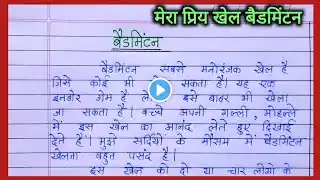 मेरा प्रिय खेल बैडमिंटन
बैडमिंटन
बैडमिंटन सबसे मनोरंजक खेल है
जिसे कोई भी खेल सकता है। यह एक
इनडोर गेम है लेकिन इसे बाहर भी खेला
जा सकता है। बच्चे अपनी गल्ली, मोहल्ले
में इस खेल का आनंद लेते हुए दिखाई
देते हैं। मुझे सर्दियों के मौसम में बैडमिंटन
खेलना बहुत पसंद है।
इस खेल को दो या चार लोगों के